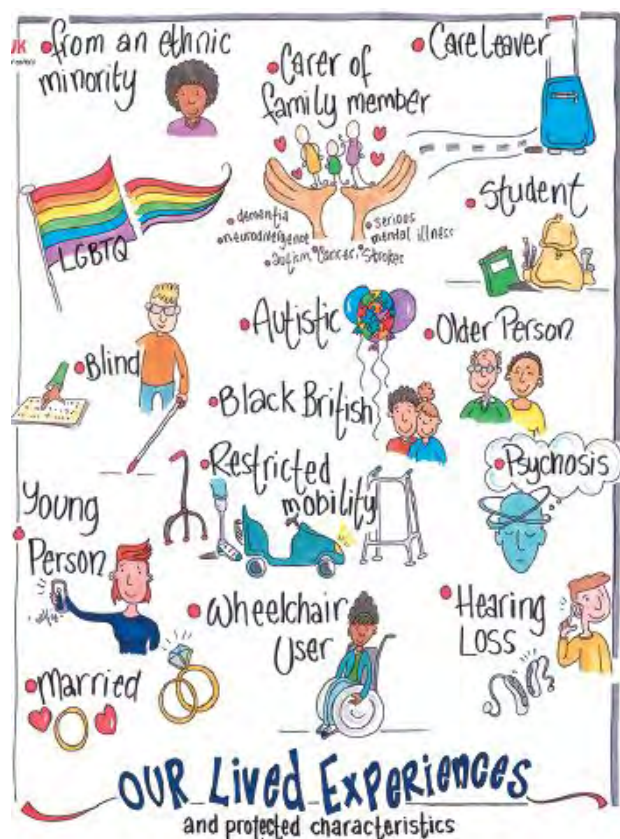 UK
• from an ethnic
minority
• Carer of
family member
• dementia
• neurodivergence
• autism, • Cancer, • Strokes
• serious
mental illness
• Care Leaver
LGBTQ
• Student
• Blind
• Autistic
• Older Person
• Black British
• Restricted
mobility
• Psychosis
Young
Person
• Wheelchair
User
• Hearing
Loss
• Married
OUR Lived Experiences
and protected characteristics